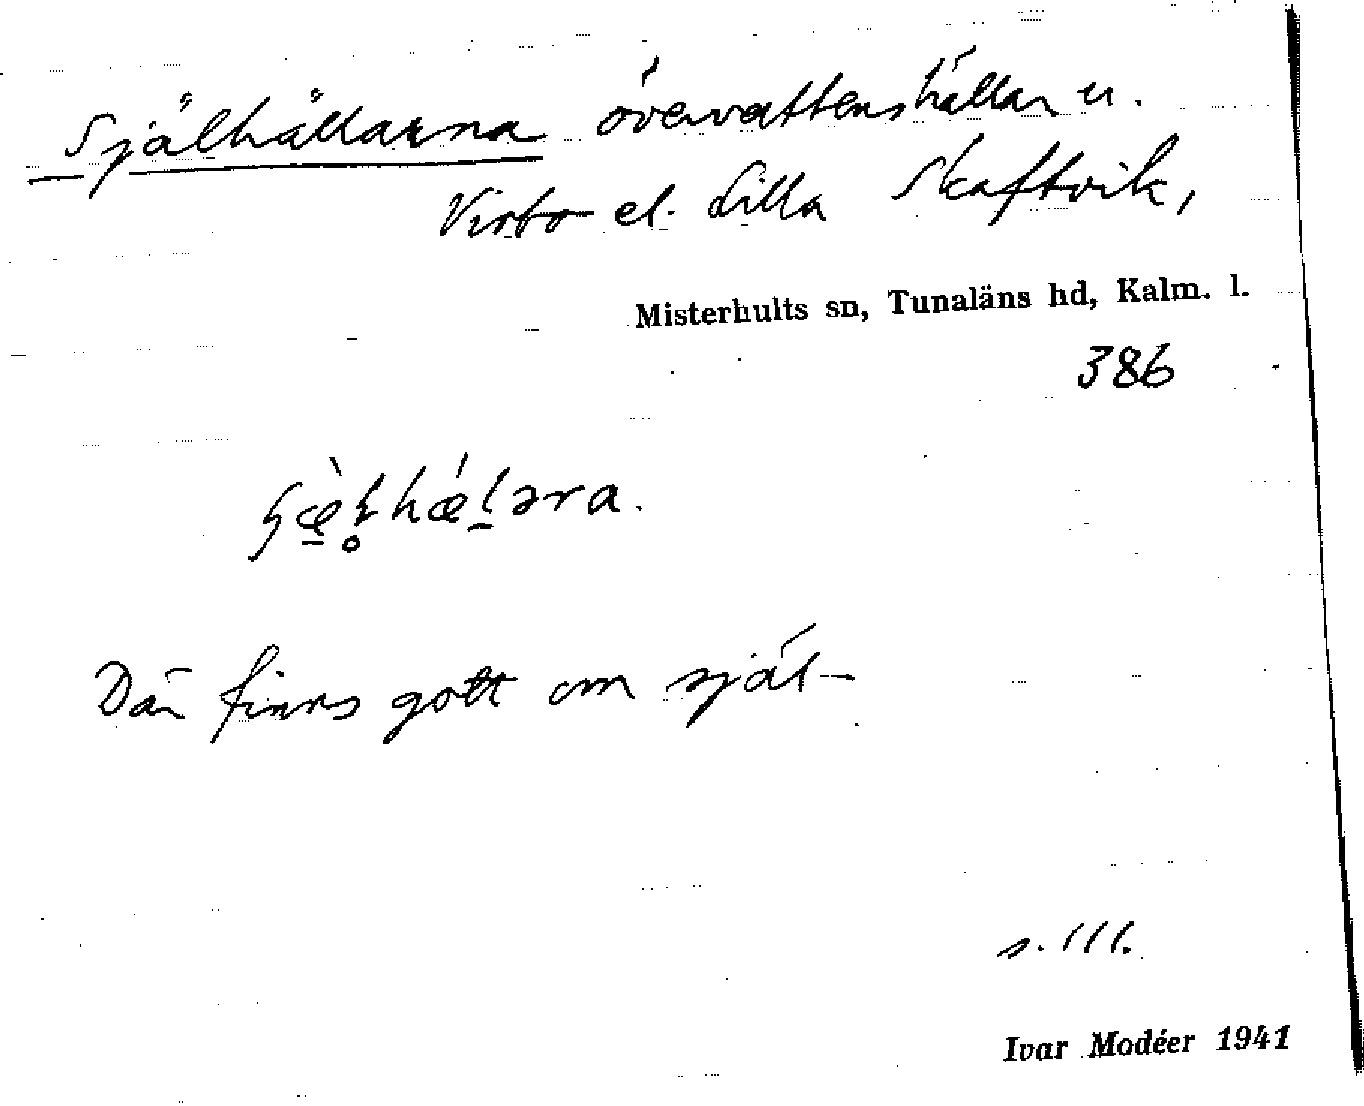 Själhällarna övervattenshällar u.
Virbo el. Lilla Skaftvik,
Misterhults sn, Tunaläns hd, Kalm. l.
386
Där finns gott om själ-
s. 111.
Ivar Modéer 1941